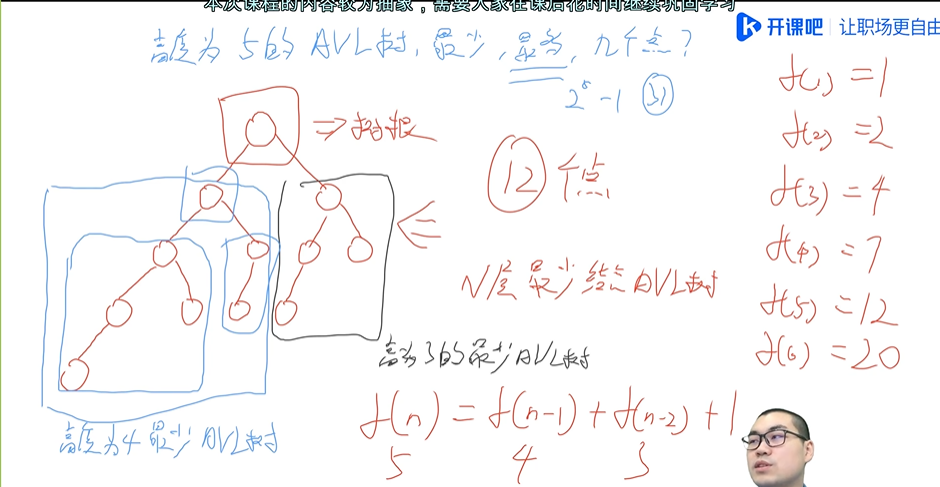 本次课程的内容较为抽象，需要大家在课后花时间继续巩固学习
开课吧 让职场更自由
高度为5的AVL树，最少，最多，几个点？
2⁵-1 31
⇒树根
12个点
N层最少结点AVL树
高为3的最少AVL树
高度为4最少AVL树
f(n) = f(n-1) + f(n-2) + 1
5 4 3
f(1) = 1
f(2) = 2
f(3) = 4
f(4) = 7
f(5) = 12
f(6) = 20